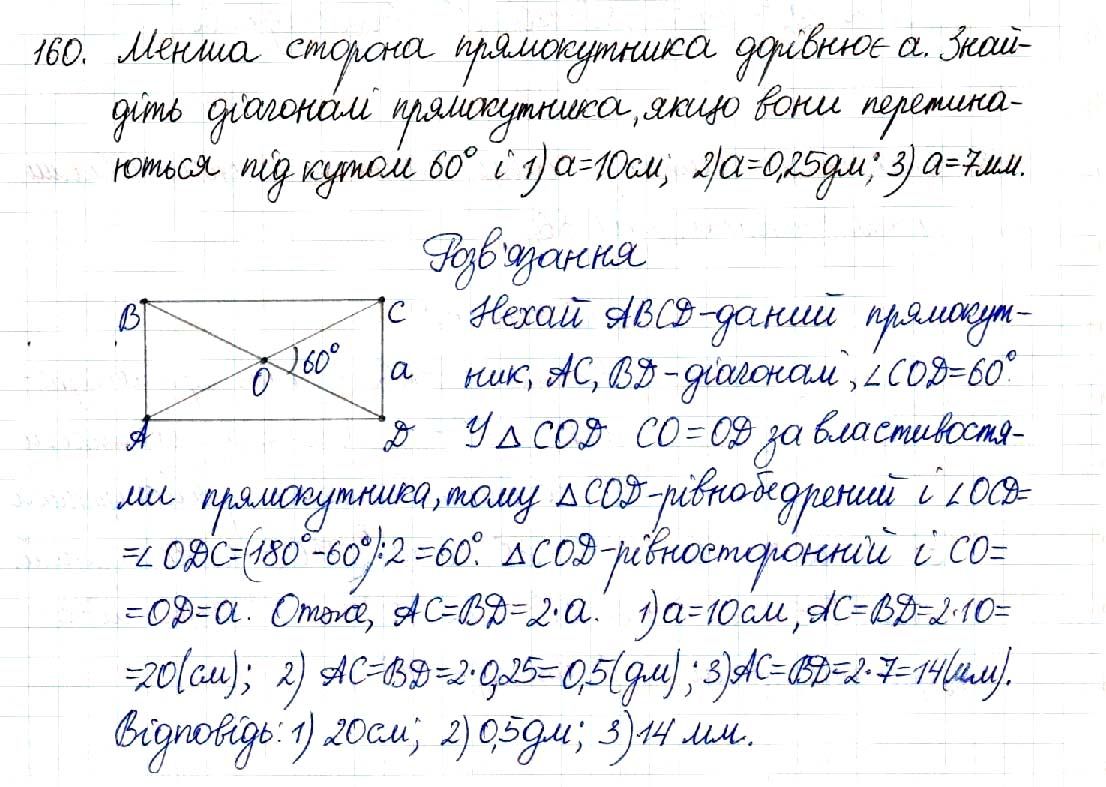 160. Менша сторона прямокутника дорівнює a. Знай-
діть діагоналі прямокутника, якщо вони перетина-
ються під кутом 60° і 1) a=10см; 2) a=0,25дм; 3) a=7мм.
Розв'язання
B C
60°
O a
A D
Нехай ABCD-даний прямокут-
ник, AC, BD-діагоналі, ∠COD=60°.
У △COD CO=OD за властивостя-
ми прямокутника, тому △COD-рівнобедрений і ∠OCD=
=∠ODC=(180°-60°):2=60°. △COD-рівносторонній і CO=
=OD=a. Отже, AC=BD=2·a. 1) a=10см, AC=BD=2·10=
=20(см); 2) AC=BD=2·0,25=0,5(дм); 3) AC=BD=2·7=14(мм).
Відповідь: 1) 20см; 2) 0,5дм; 3) 14 мм.